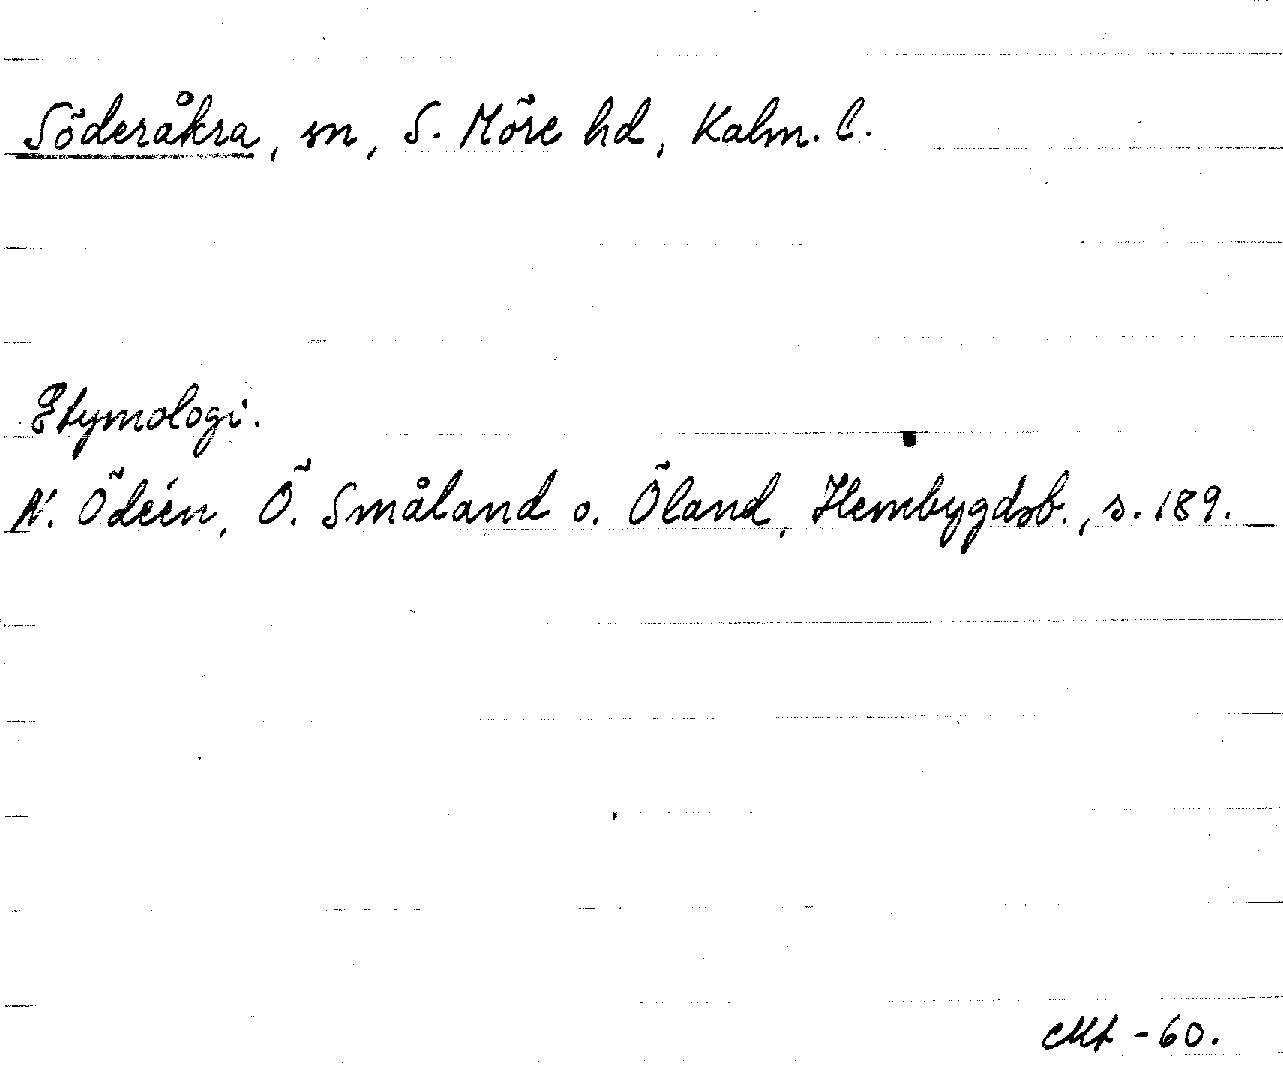 Söderåkra, sn, S. Möre hd, Kalm. l.
Etymologi.
N. Ödéen, Ö. Småland o. Öland, Hembygdsb., s. 189.
-60.